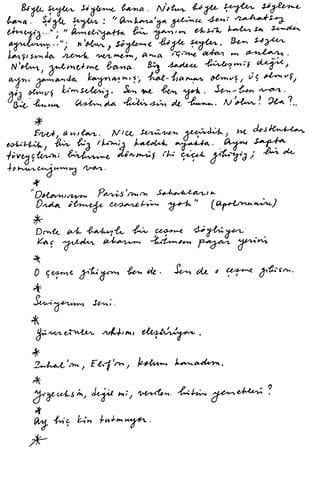 Böyle şeyler söyleme bana. N'olur böyle şeyler söyleme
bana. Söyle şeyler : "Ankara'ya gelince seni rahatsız
etmeyiz..."; "Ameliyatta bir yanım eksik kalırsa senden
ayrılırım..."; n'olur, söyleme böyle şeyler. Ben sözler
karşısında renk vermem, ama içime atar anlarım.
N'olur, yapma bana. Biz sadece birleşmiş değil,
aynı zamanda kaynaşmış, hal-hamur olmuş, üç olmuş,
göz olmuş kimseleriz. Sen ne ben yok. Sen-ben var.
Bil bunu. Aslında bilirsin de bunu. N'olur! Ha?..
Evet, anılar. Nice serüven geçirdik, ne dostluklar
eskittik, bir biz ikimiz kaldık ayakta. Aynı sapta
birbirine dönmüş iki çiçek gibiyiz; bir de
tomurcuğumuz var.
*
"Dolanıyorum Paris'inin sokaklarını
Orda ölmeğe cesaretim yok" (Apollinaire)
*
Dinle ak bakışlı bir çeşme söylüyor
Kaç yıldır akarım bilmem pazar yerini
*
O çeşme gibiyim ben de. Sen de o çeşme gibisin.
*
Seviyorum seni.
*
Güvercinler rıhtımı eleştiriyor.
*
Zuhal'im, Elif'im, kolum kanadım.
*
Yiyeceksin, değil mi, verilen bütün yemekleri?
*
Ay hiç kin tutmuyor.
*